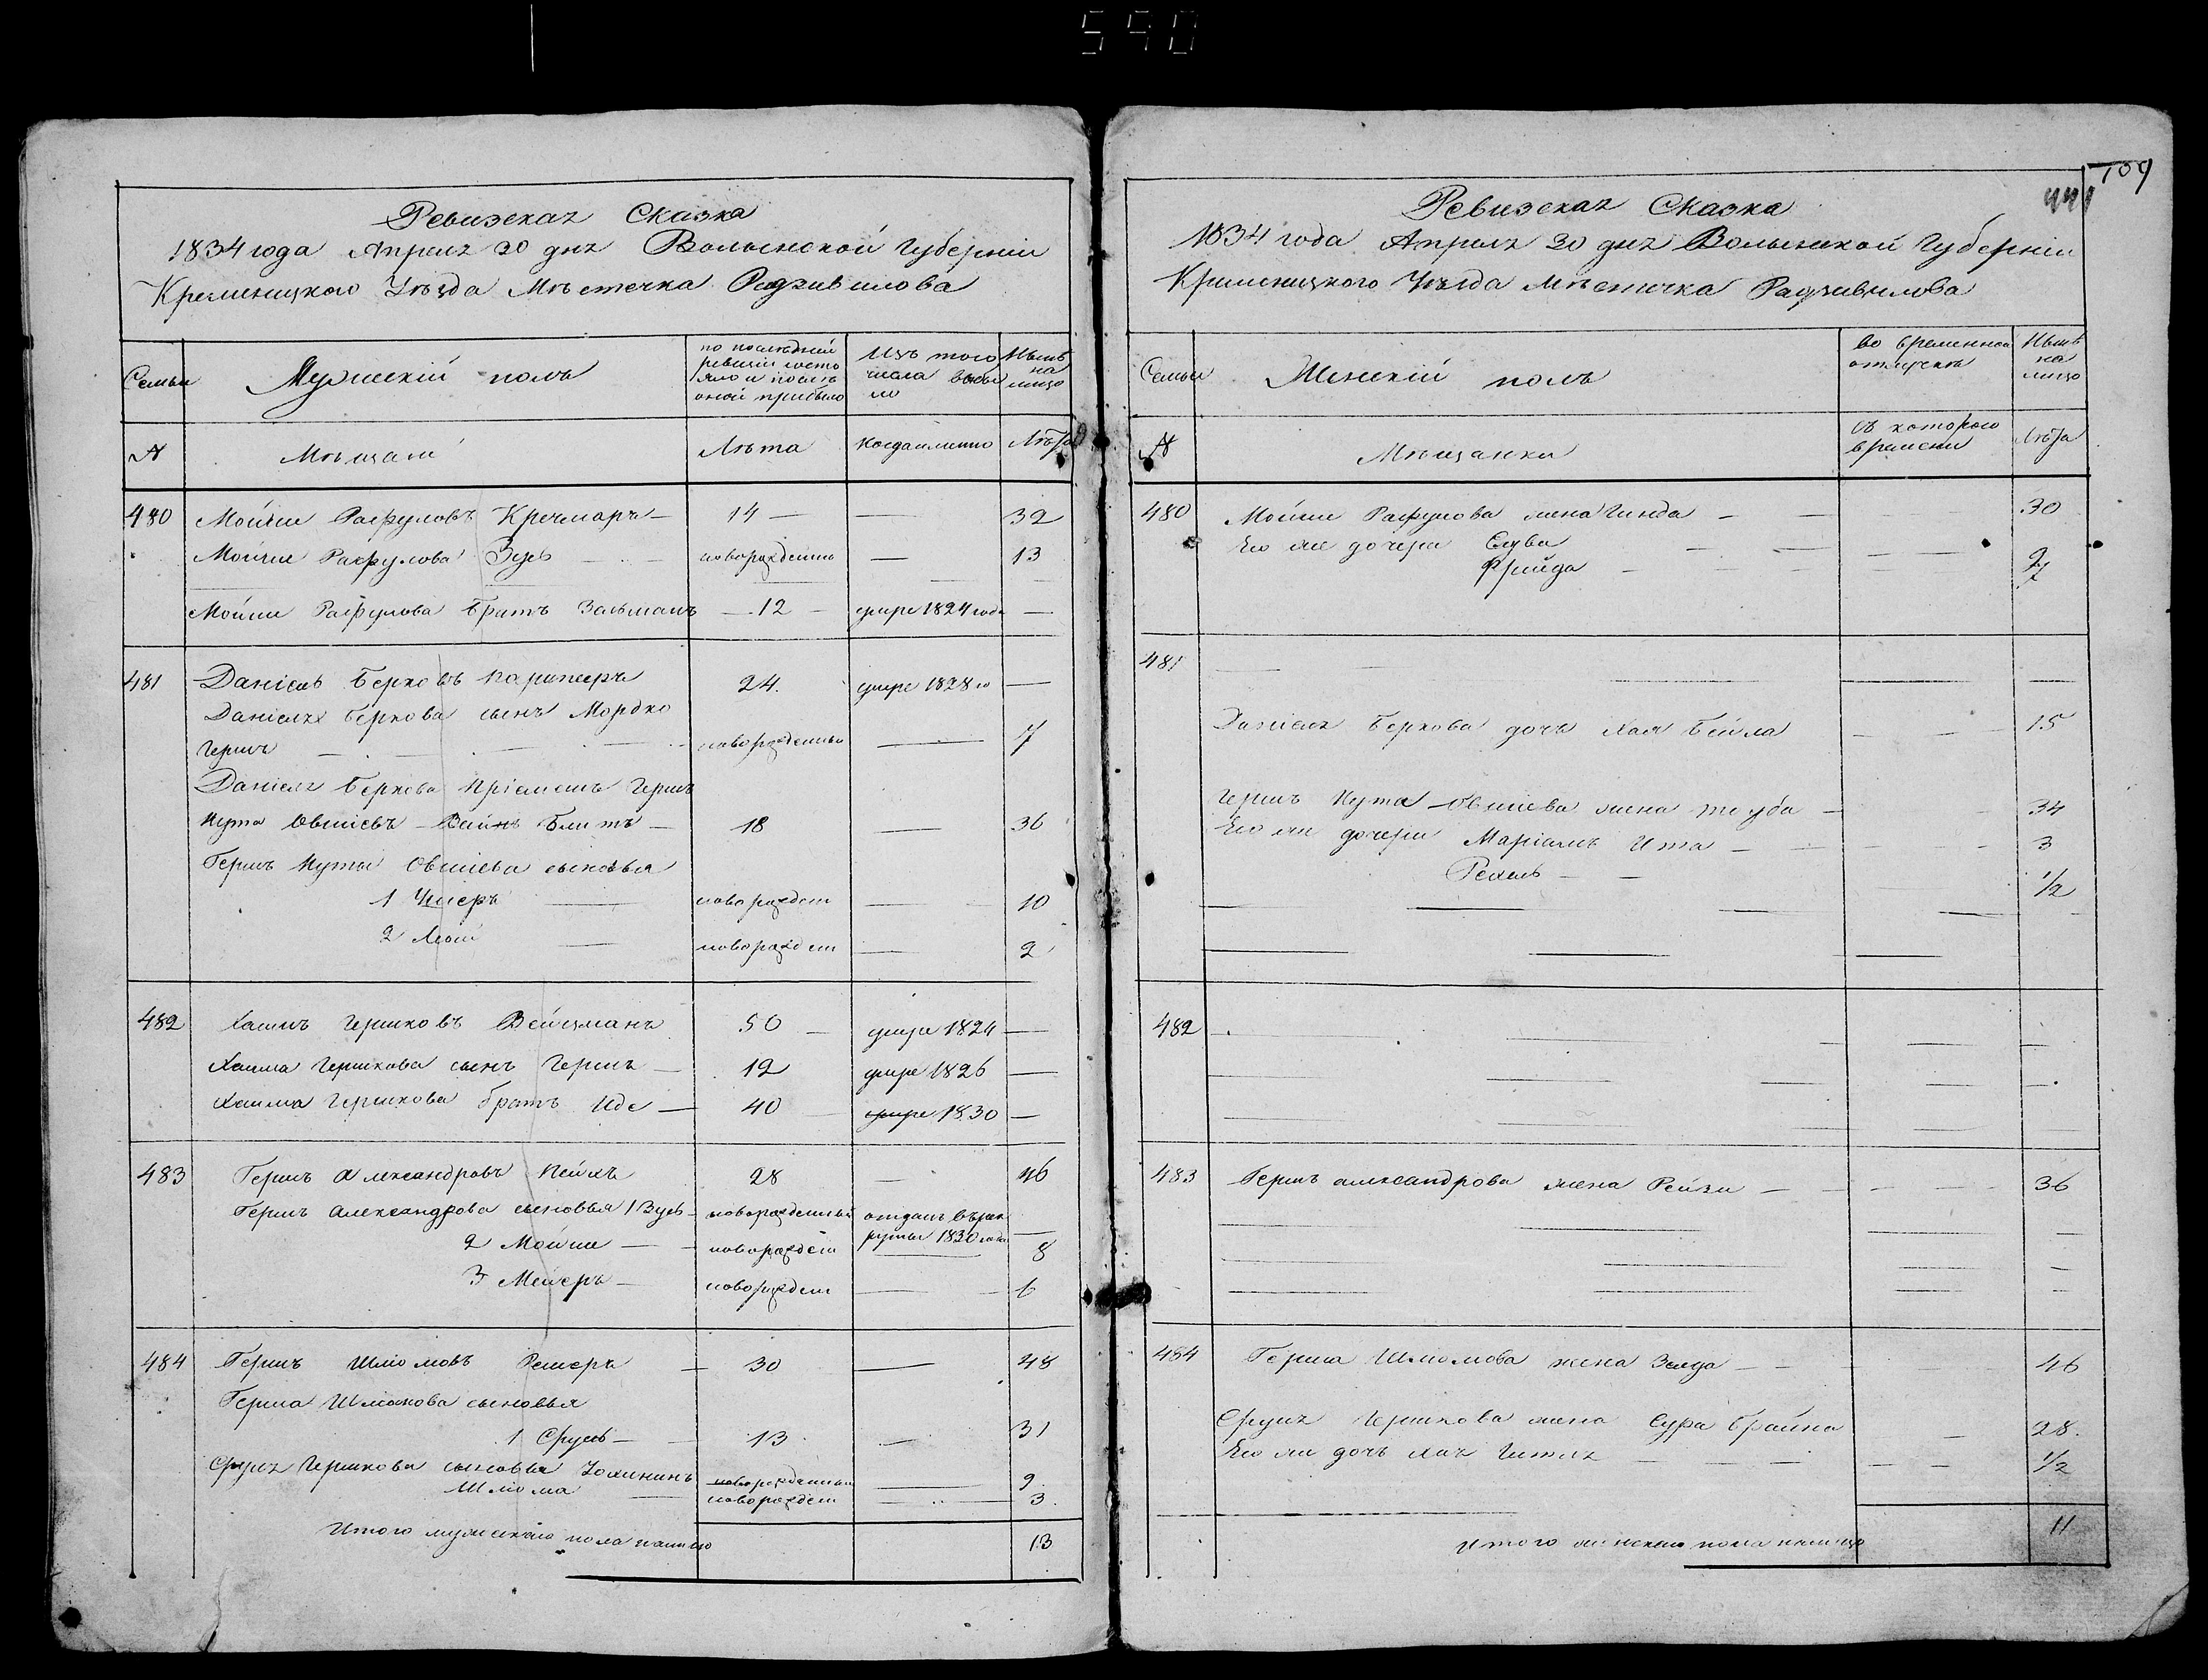 590
Ревизская Сказка
1834 года Апреля 30 дня Волынской Губернiи
Кременицкого Уѣзда Мѣстечка Радзивилова
Семьи
Мужескiй полъ
по послѣдней
ревизiи состо
яло и послѣ
оной прибыло
Изъ того
числа выбы
ло
Нынѣ
на
лицо
№
Мѣщане
Лѣта
когда именно
Лѣта
480 Мойши Рафуловъ Кречмаръ — 14 — — 32
Мойши Рафулова Зусь новорожденны — 13
Мойши Рафулова братъ Зальманъ — 12 — умре 1824 года —
481 Данiель Берковъ 24. умре 1828 го —
Данiеля Беркова сынъ Мордко
Гершъ новорожденны — 7
Данiеля Беркова прiемышъ Гершъ
Нута Овшiевъ — 18 — 36
Гершъ Нуты Овшiева сыновья
1 новорожден — 10
2 новорожден — 2
482 Хаимъ Гершковъ Вейцманъ 50 — умре 1824 —
Хаима Гершкова сынъ Гершъ — 12 умре 1826 —
Хаима Гершкова братъ Иде — 40 умре 1830 —
483 Гершъ Александровъ 28 — 46
Гершъ Александрова сыновья 1 Зусь — новорожденный отданъ въ рек
руты 1830 года —
2 Мойше — новорожден — 8
3 Мейеръ — новорожден — 6
484 Гершъ Шлiомовъ — 30 — 48
Герша Шлiомова сыновья
1 Сруль — 13 — 31
Сруля Гершкова сыновья новорожденны — 9
Шлiома новорожден — 3.
Итого мужескаго пола налицо 13
109
441
Ревизская Сказка
1834 года Апреля 30 дня Волынской Губернiи
Кременицкого Уѣзда Мѣстечка Радзивилова
Семьи
Женскiй полъ
во временной
отлучкѣ
Нынѣ
на
лицо
№
Мѣщанки
съ которого
времени
Лѣта
480 Мойши Рафулова жена Гинда — — 30
Его же дочери — — 9
Фрейда — 7
481
Данiеля Беркова дочь Хая Бейла 15
Гершъ Нута Овшiева жена Тауба — 34
Его же дочери Марiямъ Ита — 3
Рехель — 1/2
482
483 Гершъ Александрова жена Рейзи — 36
484 Герша Шлiомова жена Зелда — — 46
Сруля Гершкова жена Сура Брайна — 28.
Его же дочь Хая Гитля — 1/2
Итого женскаго пола налицо 11